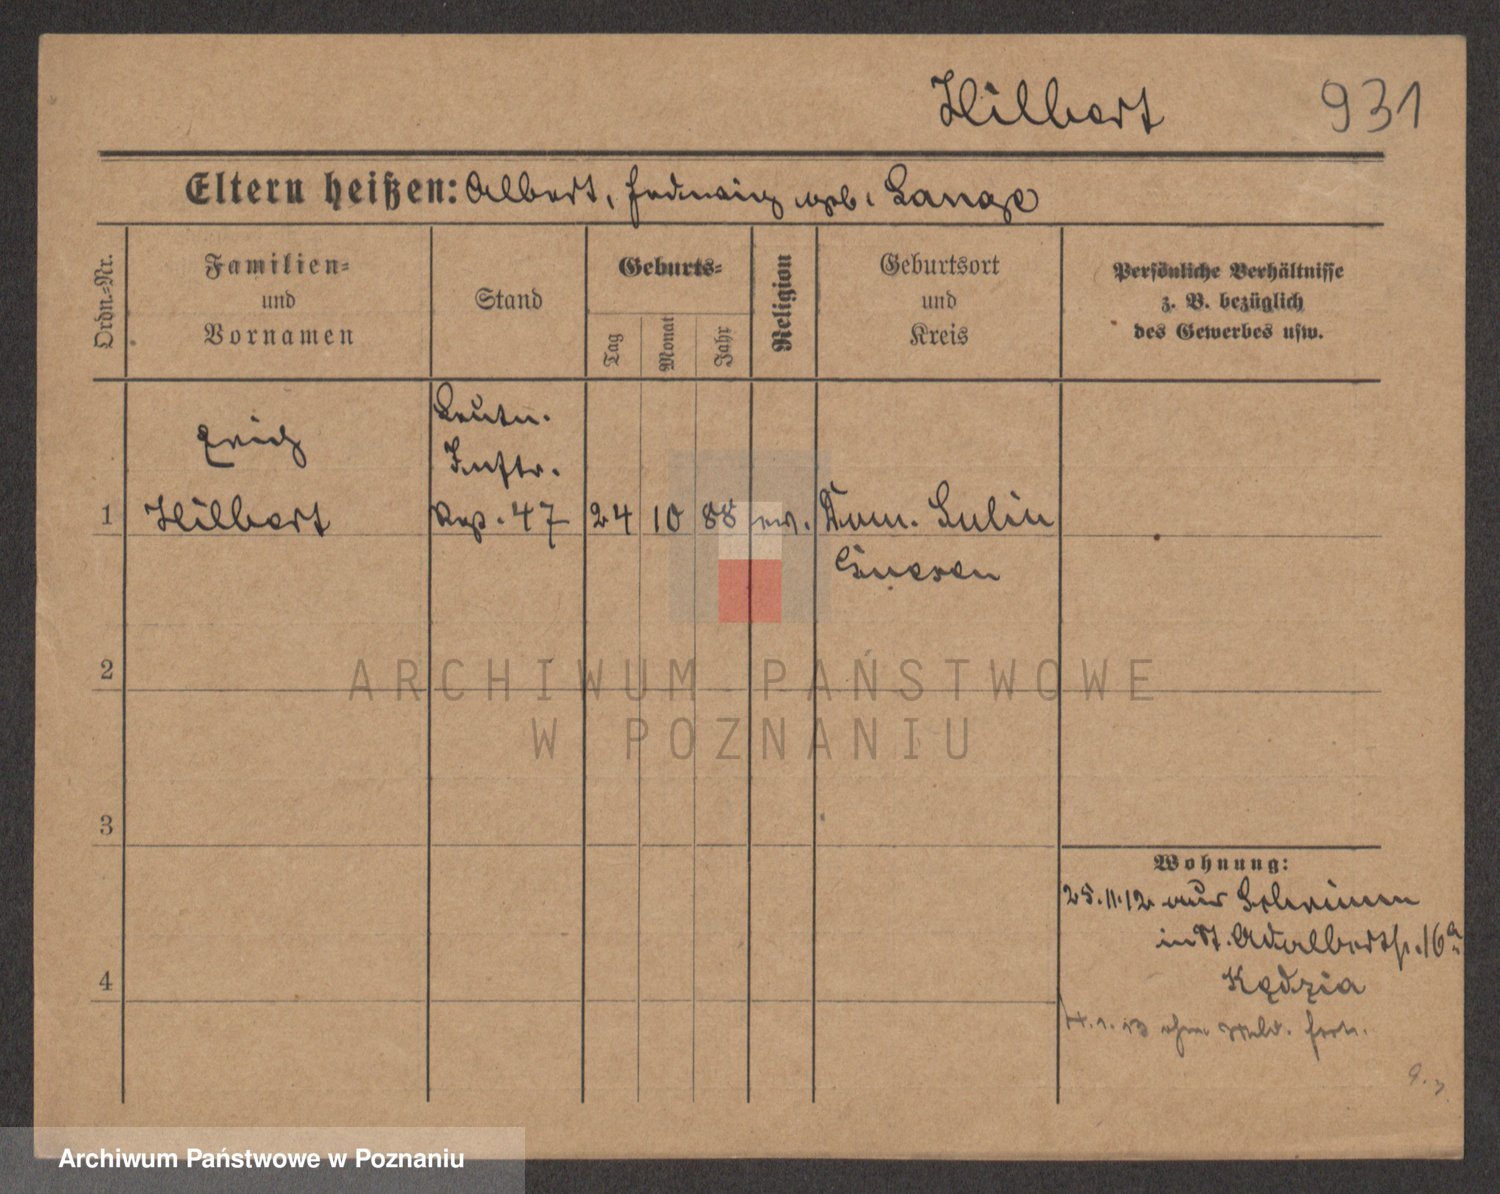 Hilbert 931
Eltern heißen: Albert, Hedwig geb. Lange
Ordn.-Nr.
Familien-
und
Vornamen
Stand
Geburts-
Tag
Monat
Jahr
Religion
Geburtsort
und
Kreis
Persönliche Verhältnisse
z. B. bezüglich
des Gewerbes usw.
Erich
Leutn.
Inftr.
1 Hilbert Reg. 47 24 10 88 ev. Dom. Sulin
Gnesen
2
ARCHIWUM PAŃSTWOWE
W POZNANIU
3
Wohnung:
25.11.12 aus Schrimm
in St. Adalbertstr. 16a
4
Kędzia
ohne Meld. fort.
Archiwum Państwowe w Poznaniu